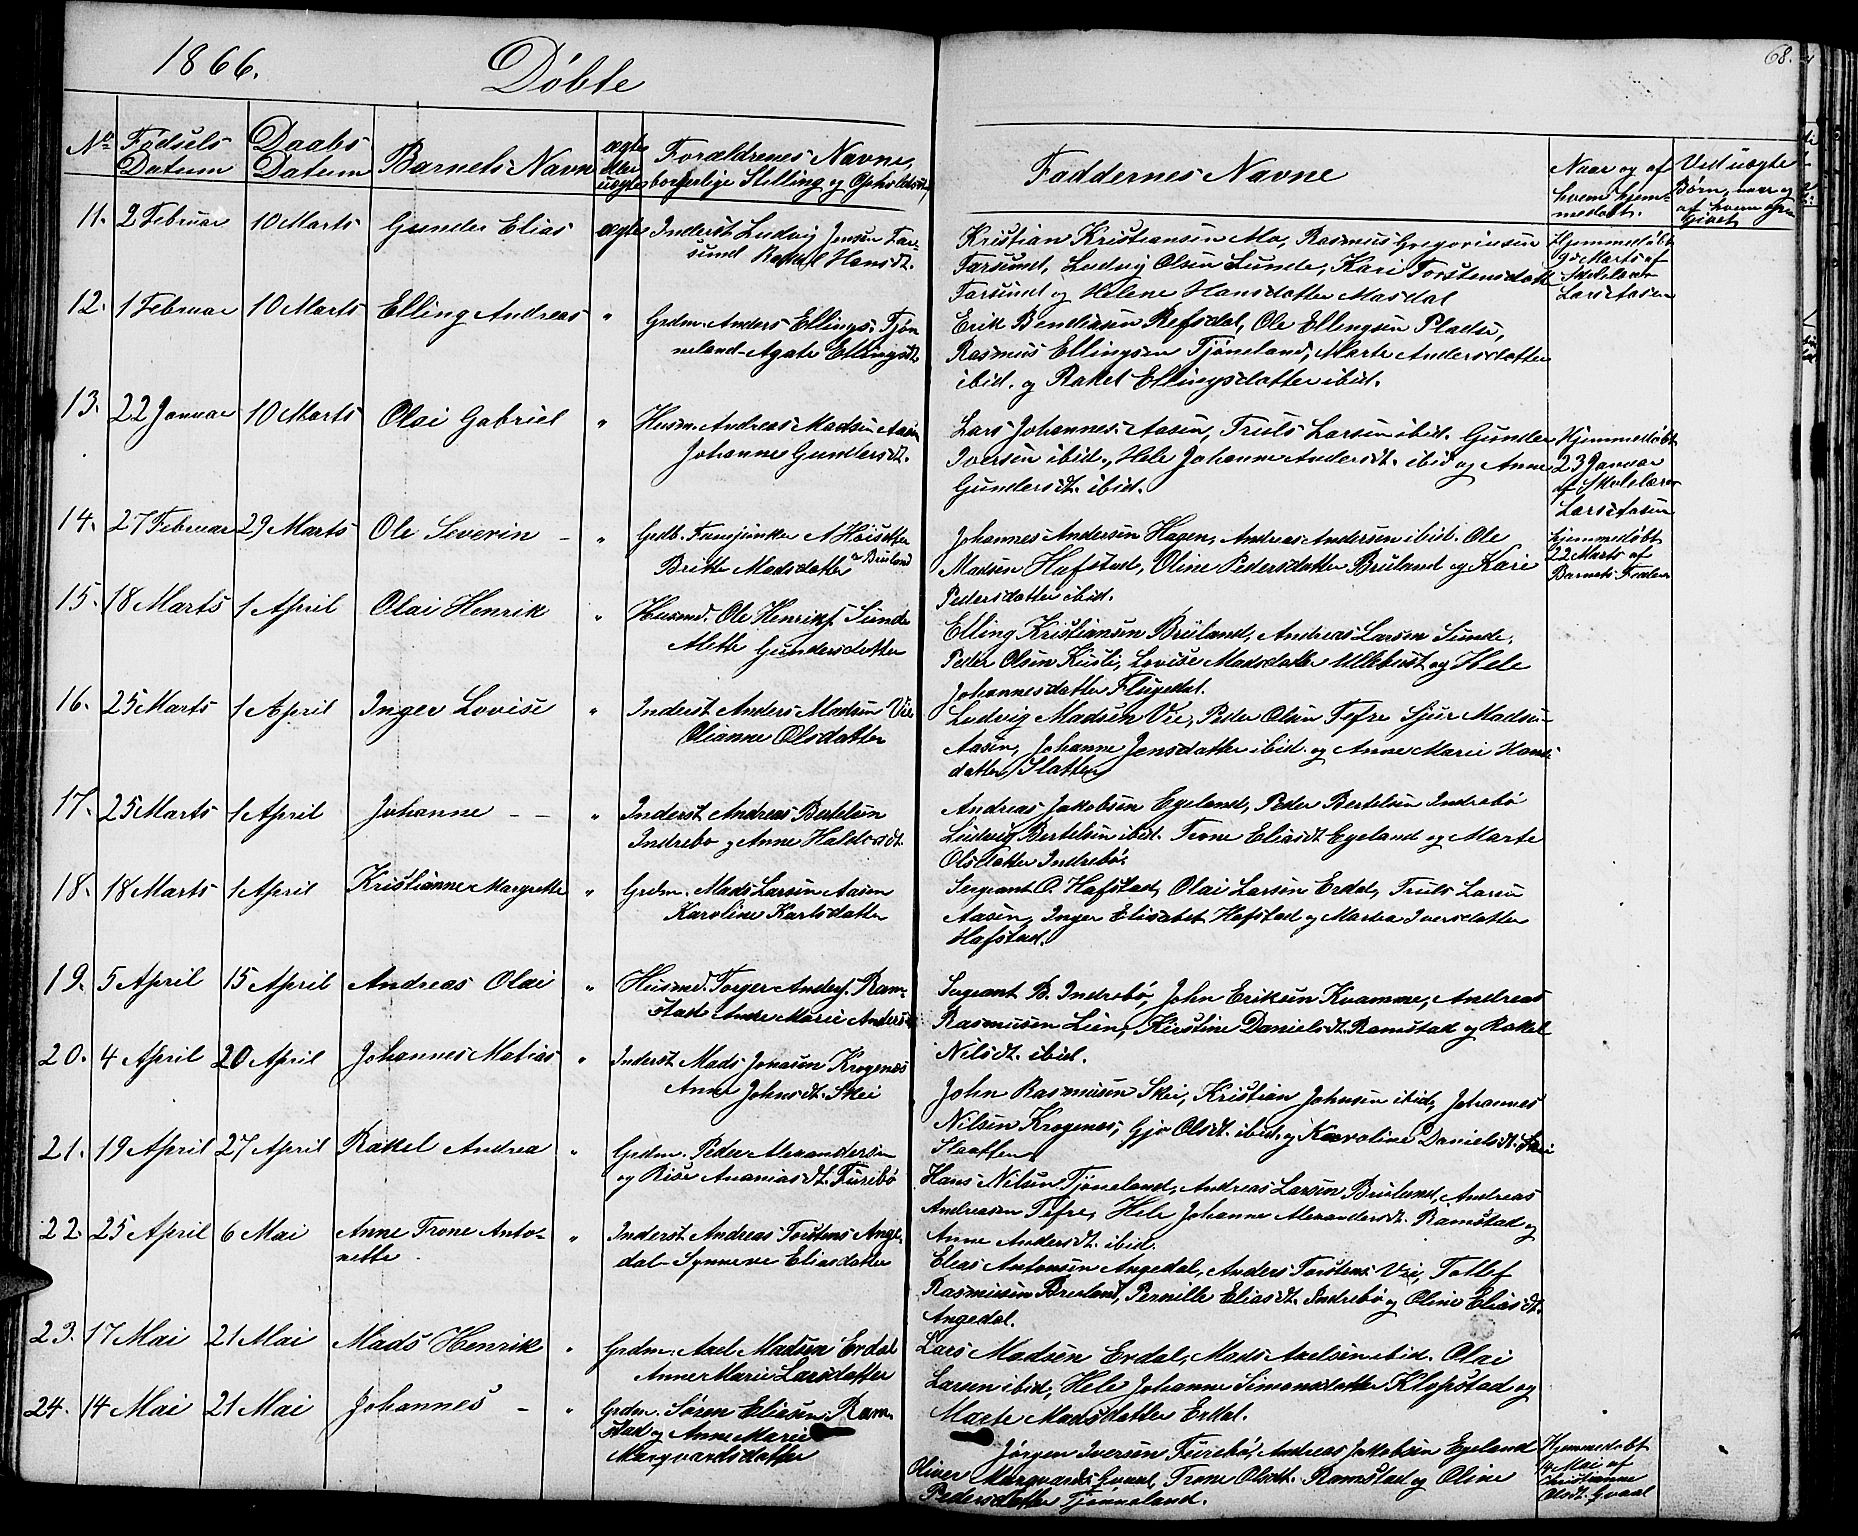 1866.
Döbte
68.
No
Födsels Datum
Daabs Datum
Barnets Navn
ægte eller uægte
Forældrenes Navne, borgerlige Stilling og Opholdsted
Faddernes Navne
Naar og af hvem hjemmedøbt.
Ved uægte Børn, naar og af hvem Givet
11. 2 Februar 10 Marts Gunder Elias ægte Inderst Ludvig Jensen Far-
sund Rakel Hansdt.
Kristian Kristiansen Mo, Rasmus Gregoriusen
Farsund, Ludvig Olsen Sunde, Kari Torstensdatter
Farsund og Helene Hansdatter Masdal
Hjemmedöbt
Marts af
Skolelærer
Lars Aasen
12. 1 Februar 10 Marts Elling Andreas " Grdm. Anders Ellings. Tjön-
neland Agate Ellingsdt.
Erik Bendixsen Refsdal, Ole Ellingsen Pladse,
Rasmus Ellingsen Tjöneland, Marte Andersdatter
ibid. og Rakel Ellingsdatter ibid.
13. 22 Januar 10 Marts Olai Gabriel " Husm. Andreas Madsen Aasen
Johanne Gundersdt.
Lars Johannes. Aasen, Truls Larsen ibid. Gunder
Iversen ibid., Hele Johanne Andersdt. ibid og Anne
Gundersdt. ibid.
Hjemmedöbt
23 Januar
af Skolelærer
Lars Aasen
14. 27 Februar 29 Marts Ole Severin - " Grdb. Fanejunker A Höisæther
Britte Madsdatter Bruland
Johannes Andersen Hagen, Andreas Andersen ibid. Ole
Madsen Hafstad, Oline Pedersdatter Bruland og Kari
Pedersdatter ibid.
hjemmedöbt
22 Marts af
Barnets Fader
15. 18 Marts 1 April Olai Henrik " Husmd. Ole Henriks. Sunde
Alette Gundersdatter
Elling Kristiansen Bruland, Andreas Larsen Sunde,
Peder Olsen Kusli, Lovise Madsdatter Ullaland og Hele
Johannesdatter Flugedal.
16. 25 Marts 1 April Inger Lovise " Inderst Anders Madsen Vie
Olianne Olsdatter
Ludvig Madsen Vie, Peder Olsen Tefre Sjur Madsen
Aasen, Johanne Jensdatter ibid. og Anne Marie Hans-
datter Slatten
17. 25 Marts 1 April Johanne - - " Inderst Andreas Bertelsen
Indrebo og Anne Haldorsdt.
Andreas Jakobsen Egeland, Peder Bertelsen Indrebö
Ludvig Bertelsen ibid. Trone Eliasdt. Egeland og Marte
Olsdatter Indrebö.
18. 18 Marts 1 April Kristianne Margrethe " Grdm. Mads Larsen Aasen
Karoline Karlsdatter
Sergeant O. Hafstad, Olai Larsen Erdal, Truls Larsen
Aasen, Inger Elisabet Hafstad og Martea Iversdatter
Hafstad.
19. 5 April 15 April Andreas Olai " Husmd. Torger Anders. Ram-
stad Anne Marie Andersdt
Sergeant B. Indrebö, John Eriksen Kvamme, Andreas
Rasmusen Lien, Kirstine Danielsdt. Ramstad og Rakel
Nilsdt. ibid.
20. 4 April 20 April Johannes Matias " Inderst Mads Jonasen Krogenæs
Anne Johnsdt. Skei
John Rasmusen Skei, Kristian Johnsen ibid, Johannes
Nilsen Krogenes, Gjo Olsdt. ibid. og Karoline Danielsdt. Skei
Slaatten
21. 19 April 27 April Rakel Andrea " Grdm. Peder Alexandersen
og Rise Ananiasdt. Furebö
Hans Nilsen Tjöneland, Andreas Larsen Bruland, Andreas
Andreasen Tefre, Hele Johanne Alexandersdt. Ramstad og
Anne Andersdt. ibid.
22. 25 April 6 Mai Anne Trone Anto-
nette " Inderst Andreas Torstens. Ange-
dal Synneve Eliasdatter
Elias Antonsen Angedal, Anders Torstens. Vie, Tollef
Rasmusen Bruland, Pernille Eliasdt. Indrebö og Oline Eliasdt.
Angedal.
23. 17 Mai 21 Mai Mads Henrik " Grdm. Axel Madsen Erdal
Anne Marie Larsdatter
Lars Madsen Erdal, Mads Axelsen ibid. Olai
Larsen ibid, Hele Johanne Simonsdatter Klopstad og
Marte Madsdatter Erdal.
24. 14 Mai 21 Mai Johannes - " Grdm. Sören Eliasen Ram-
stad og Anne Marie
Marqvardsdatter
Jörgen Iversen Furebö, Andreas Jakobsen Egeland
Oliver Marqvards. Gvaal, Trone Olsdt. Ramstad og Oline
Pedersdatter Tjönneland.
Hjemmedöbt
14 Mai af
Christianne
Olsdt. Gvaal